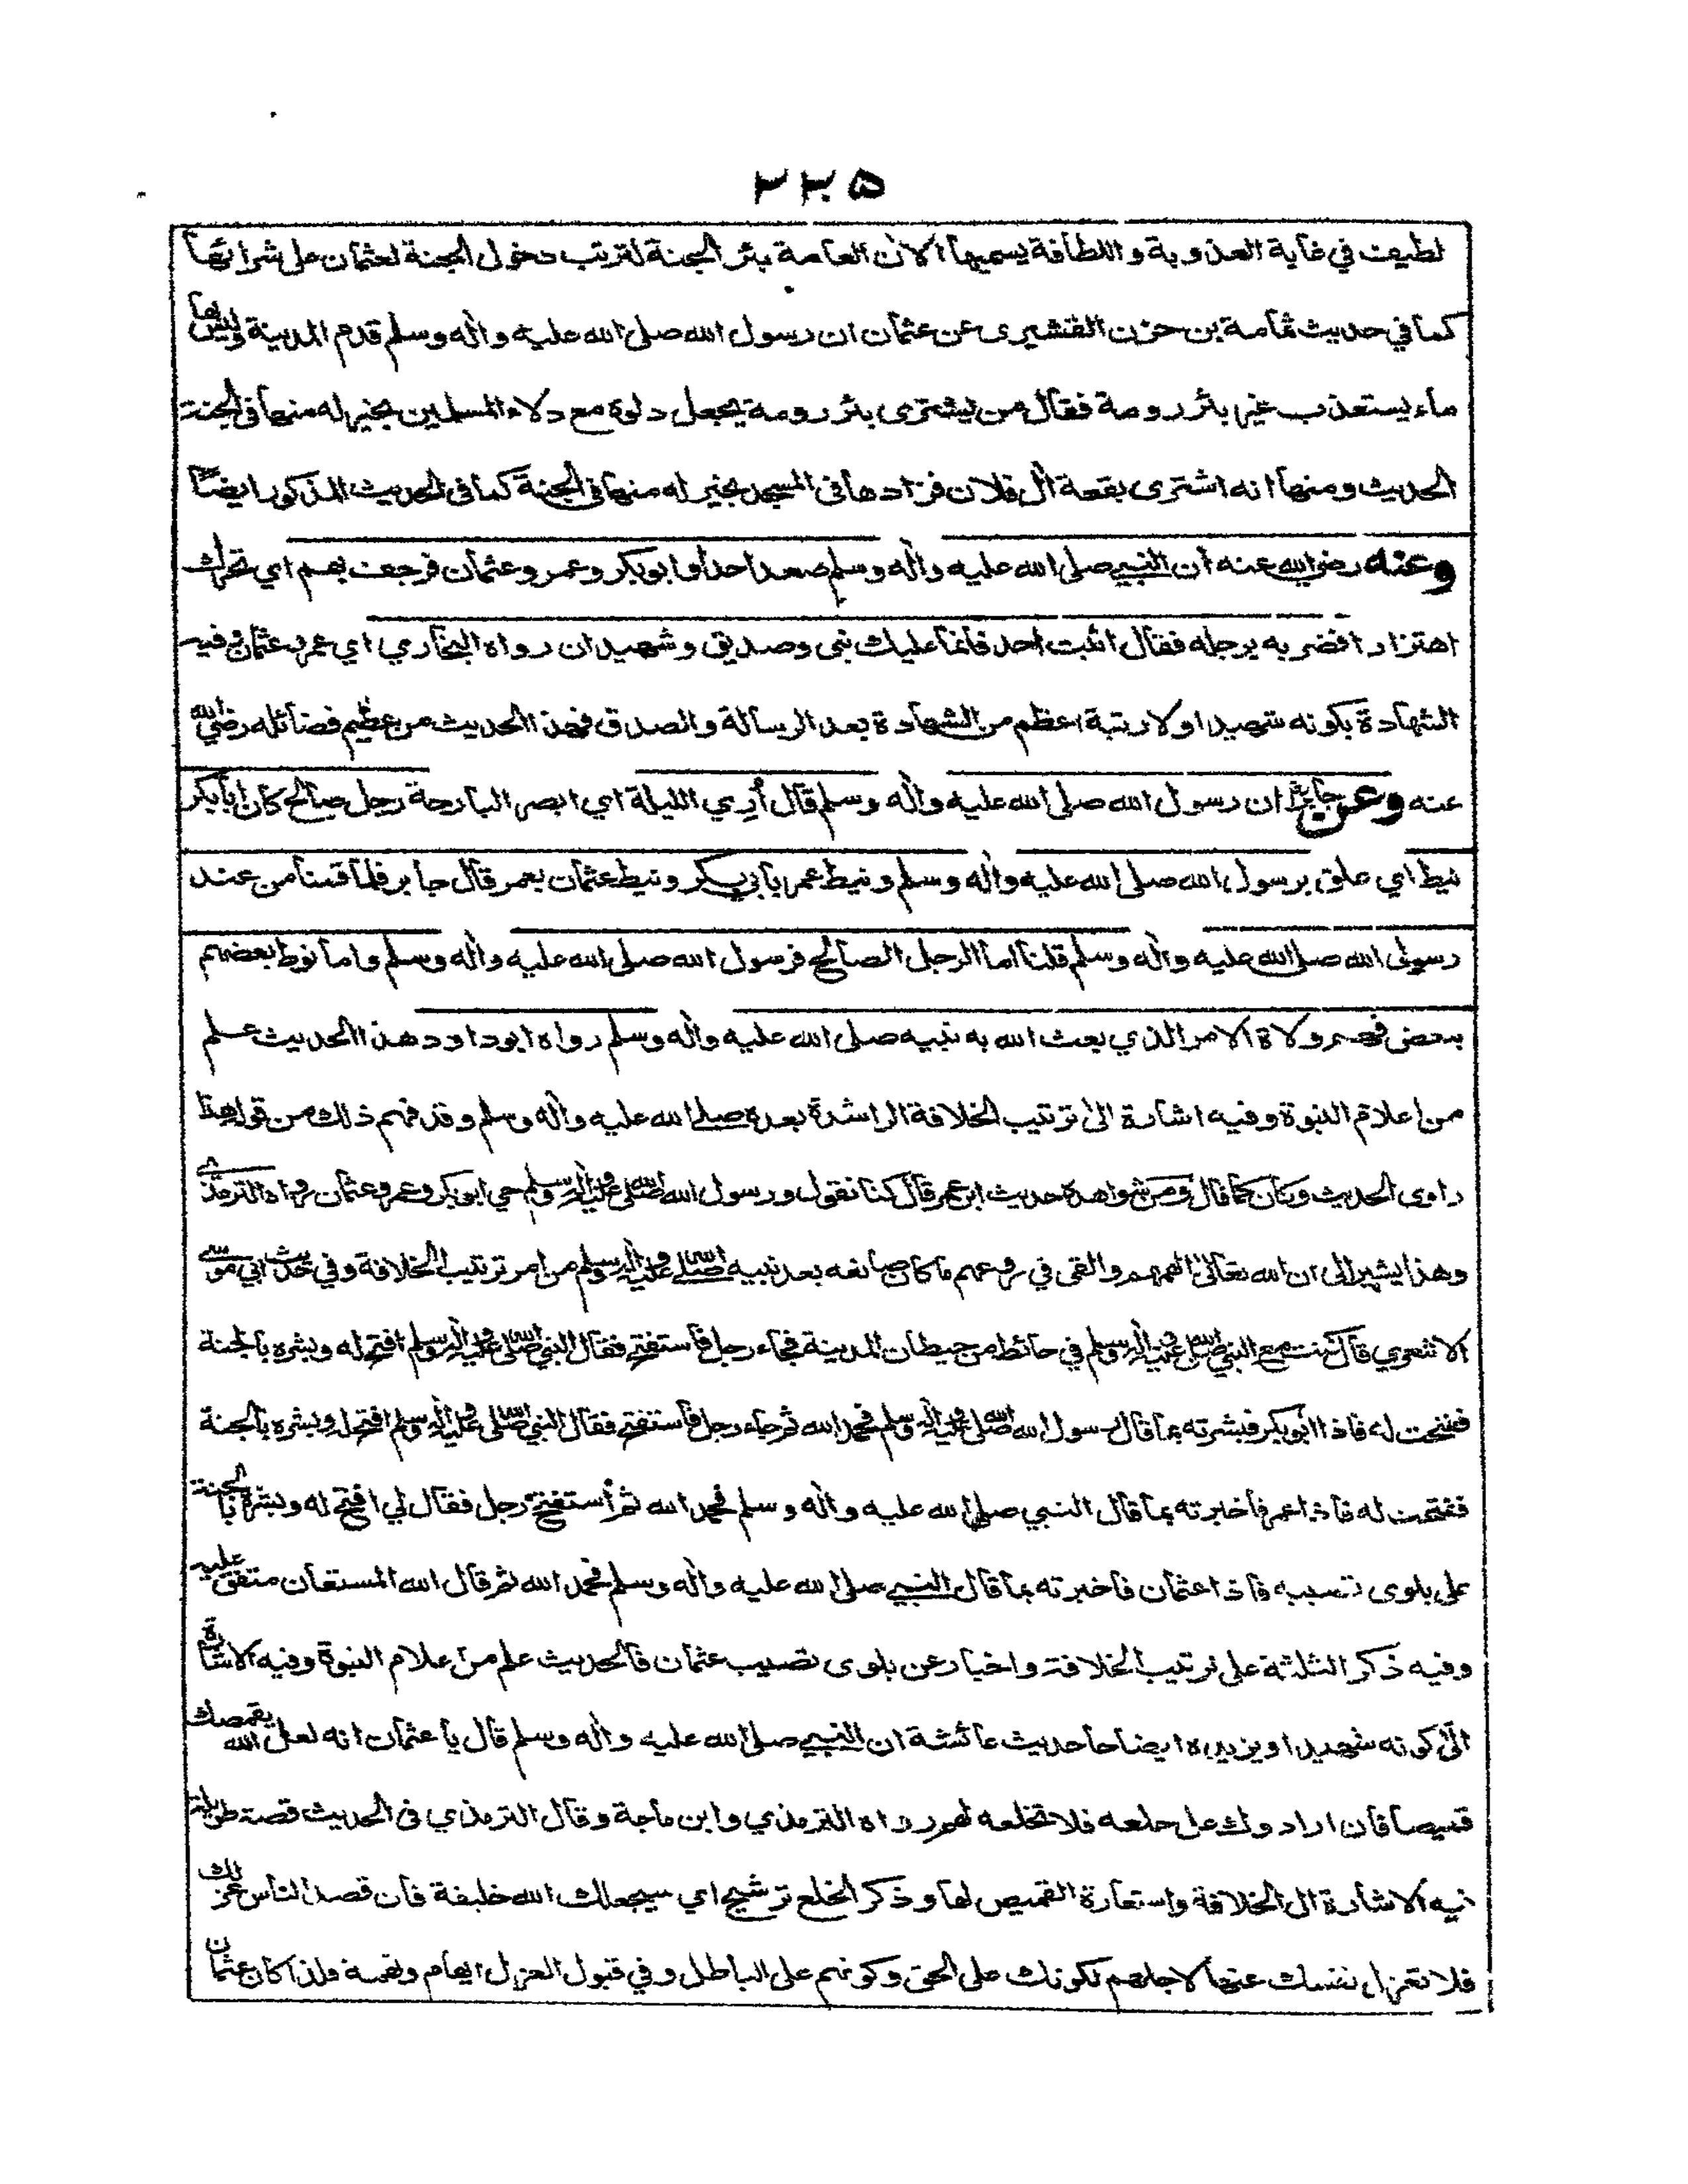 ٢٢٥
لطيف في غاية العذوبة و اللطافة يسميها الان العامة بئر الجنة لترتب دخول الجنة لعثمان على شرائها
كما في حديث ثمامة بن حزن القشيرى عن عثمان ان رسول الله صلى الله عليه واٰله وسلم قدم المدينة وليس بها
ماء يستعذب غير بئر رومة فقال من يشترى بئر رومة يجعل دلوه مع دلاء المسلمين بخير له منها في الجنة
الحديث ومنها انه اشترى بقعة اٰل فلان فزادها فى المسجد بخير له منها فى الجنة كما فى الحديث المذكور ايضاً
وعنه رضي الله عنه أن النبي صلى الله عليه واٰله وسلم صعد احدا و ابو بكر وعمر وعثمان فرجف بهم اي تحرك
اهتزازا فضربه برجله فقال اثبت احد فانما عليك نبى وصديق وشهيدان رواه البخاري اي عمر وعثمان وفيه
الشهادة بكونه شهيدا ولا رتبة اعظم من الشهادة بعد الرسالة والصدق فهذا الحديث من عظيم فضائله رضي الله
عنه وعن جابر ان رسول الله صلى الله عليه واٰله وسلم قال أري الليلة اي ابصر البارحة رجل صالح كان ابا بكر
نيط اي علق برسول الله صلى الله عليه واٰله وسلم ونيط عمر بأبي بكر ونيط عثمان بعمر قال جابر فلما قمنا من عند
رسول الله صلى الله عليه واٰله وسلم قلنا اما الرجل الصالح فرسول الله صلى الله عليه واٰله وسلم واما نوط بعضهم
ببعض فهم ولاة الامر الذي بعث الله به نبيه صلى الله عليه واٰله وسلم رواه ابو داود هذا الحديث علم
من اعلام النبوة وفيه اشارة الى ترتيب الخلافة الراشدة بعده صلى الله عليه واٰله وسلم وقد فهم ذلك من قوله هذا
راوى الحديث وكان كما قال ومن شواهده حديث ابن عمر قال كنا نقول ورسول الله صلى الله عليه واٰله وسلم حي ابو بكر وعمر وعثمان رواه الترمذي
وهذا يشير الى ان الله تعالى الهمهم والقى في روعهم ما كان صانعه بعد نبيه صلى الله عليه واٰله وسلم من امر ترتيب الخلافة وفي حديث ابي موسى
الاشعري قال كنت مع النبي صلى الله عليه واٰله وسلم في حائط من حيطان المدينة فجاء رجل فاستفتح فقال النبي صلى الله عليه واٰله وسلم افتح له وبشره بالجنة
ففتحت له فاذا ابو بكر فبشرته بما قال رسول الله صلى الله عليه واٰله وسلم فحمد الله ثم جاء رجل فاستفتح فقال النبي صلى الله عليه واٰله وسلم افتح له وبشره بالجنة
ففتحت له فاذا عمر فاخبرته بما قال النبي صلى الله عليه واٰله وسلم فحمد الله ثم أستفتح رجل فقال لي افتح له وبشره بالجنة
على بلوى تصيبه فاذا عثمان فاخبرته بما قال النبي صلى الله عليه واٰله وسلم فحمد الله ثم قال الله المستعان متفق عليه
وفيه ذكر الثلثة على ترتيب الخلافة واخبار عن بلوى تصيب عثمان فالحديث علم من اعلام النبوة وفيه الاشارة
الى كونه شهيدا ويزيده ايضاحا حديث عائشة ان النبي صلى الله عليه واٰله وسلم قال يا عثمان انه لعل الله يقمصك
قميصا فان ارادوك على خلعه فلا تخلعه لهم رواه الترمذي وابن ماجة وقال الترمذي فى الحديث قصة طويلة
فيه الاشارة الى الخلافة واستعارة القميص لها وذكر الخلع ترشيح اي سيجعلك الله خليفة فان قصد الناس عزلك
فلا تعزل نفسك عنها لاجلهم لكونك على الحق وكونهم على الباطل وفي قبول العزل ايهام وتهمة ولذا كان عثمان